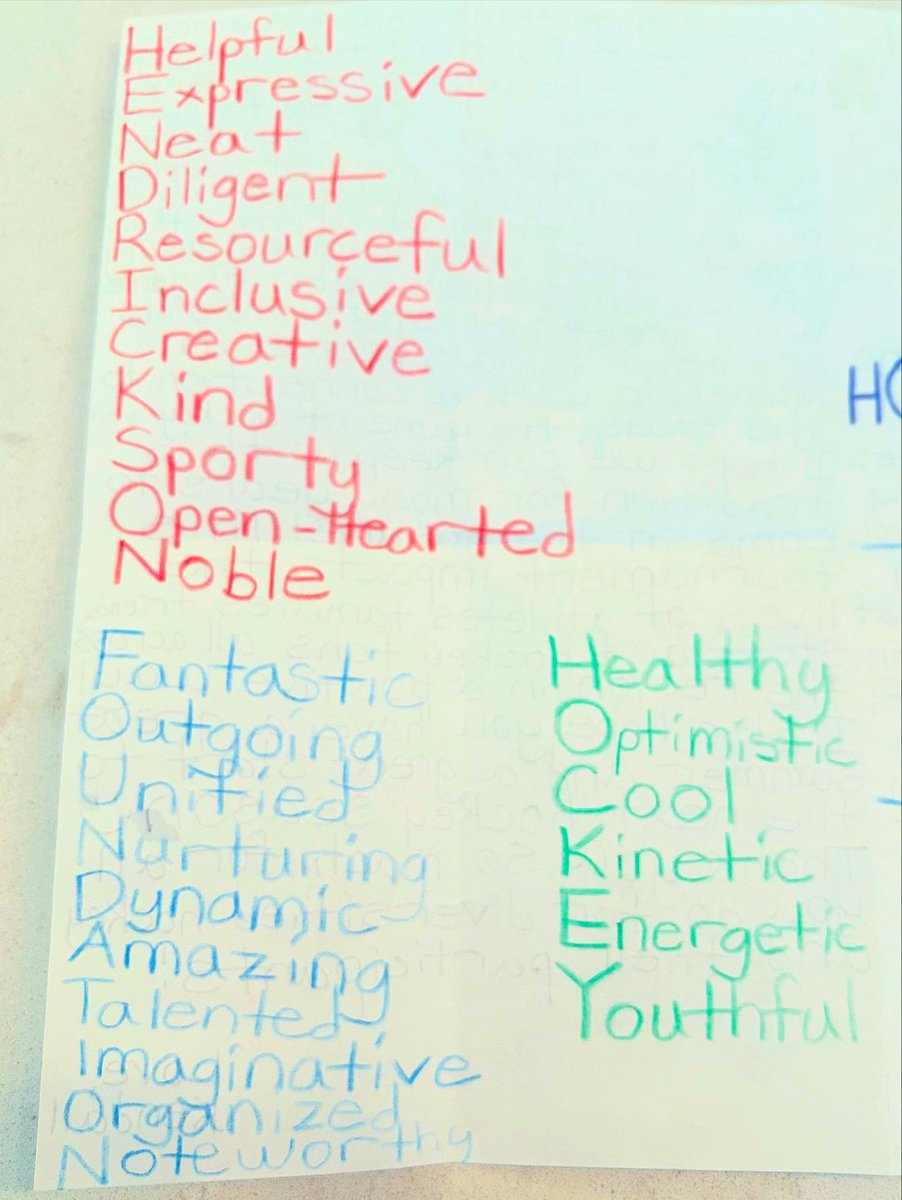 Helpful
Expressive
Neat
Diligent
Resourceful
Inclusive
Creative
Kind
Sporty
Open-Hearted
Noble
Fantastic
Outgoing
Unified
Nurturing
Dynamic
Amazing
Talented
Imaginative
Organized
Noteworthy
Healthy
Optimistic
Cool
Kinetic
Energetic
Youthful